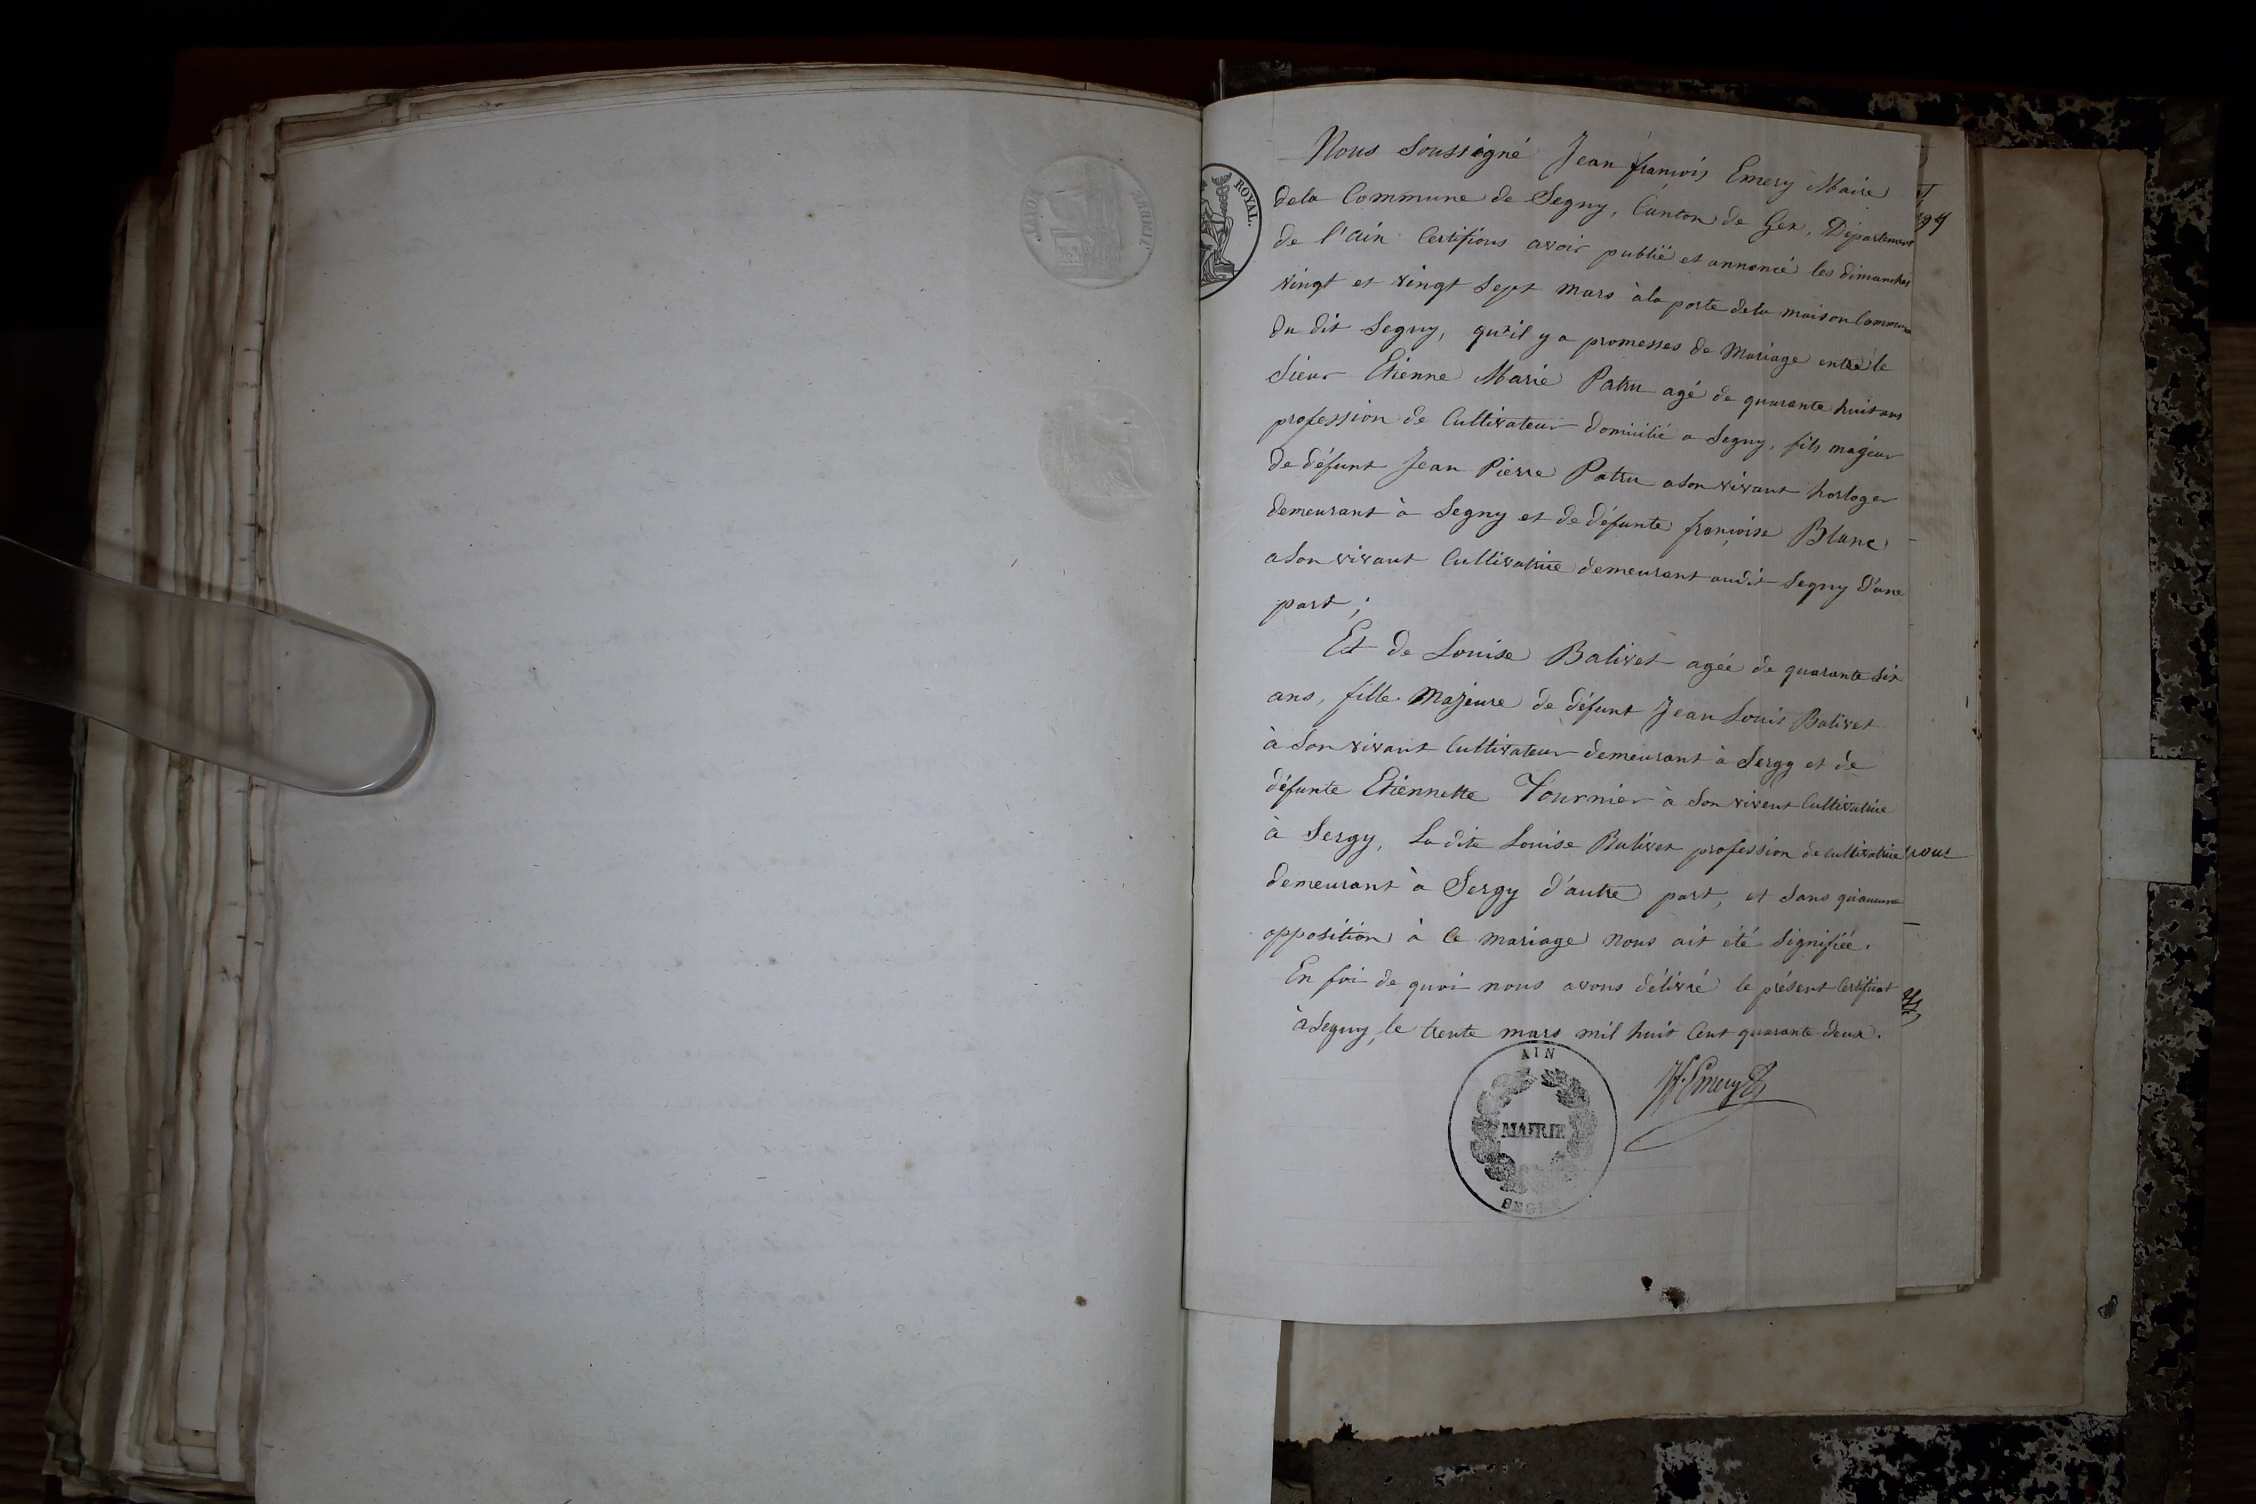 Nous Soussigné Jean françois Emery Maire
ROYAL.
dela Commune de Segny, Canton de Gex, Département
de l'Ain Certifions avoir publié et annoncé les dimanches
vingt et vingt Sept Mars à la porte dela maison Commune
du dit Segny, qu'il y a promesses de Mariage entre le
Sieur Etienne Marie Patru agé de quarante huit ans
profession de Cultivateur domicilié a Segny, fils majeur
de défunt Jean Pierre Patru a son vivant horloger
demeurant à Segny et de défunte françoise Blanc
a Son vivant Cultivatrice demeurant audit Segny D'une
part ;
Et de Louise Balivet agée de quarante Six
ans, fille Majeure de défunt Jean Louis Balivet
à Son vivant Cultivateur demeurant à Sergy et de
défunte Etiennette Tournier à Son vivent Cultivatrice
à Sergy, La dite Louise Balivet profession de cultivatrice
demeurant à Sergy d'autre part, et Sans qu'aucune
opposition à Ce mariage nous ait été Signifiée.
En foi de quoi nous avons délivré le présent Certificat
à Segny, le trente mars mil huit Cent quarante deux.
AIN
MAIRIE
Jf. Emery